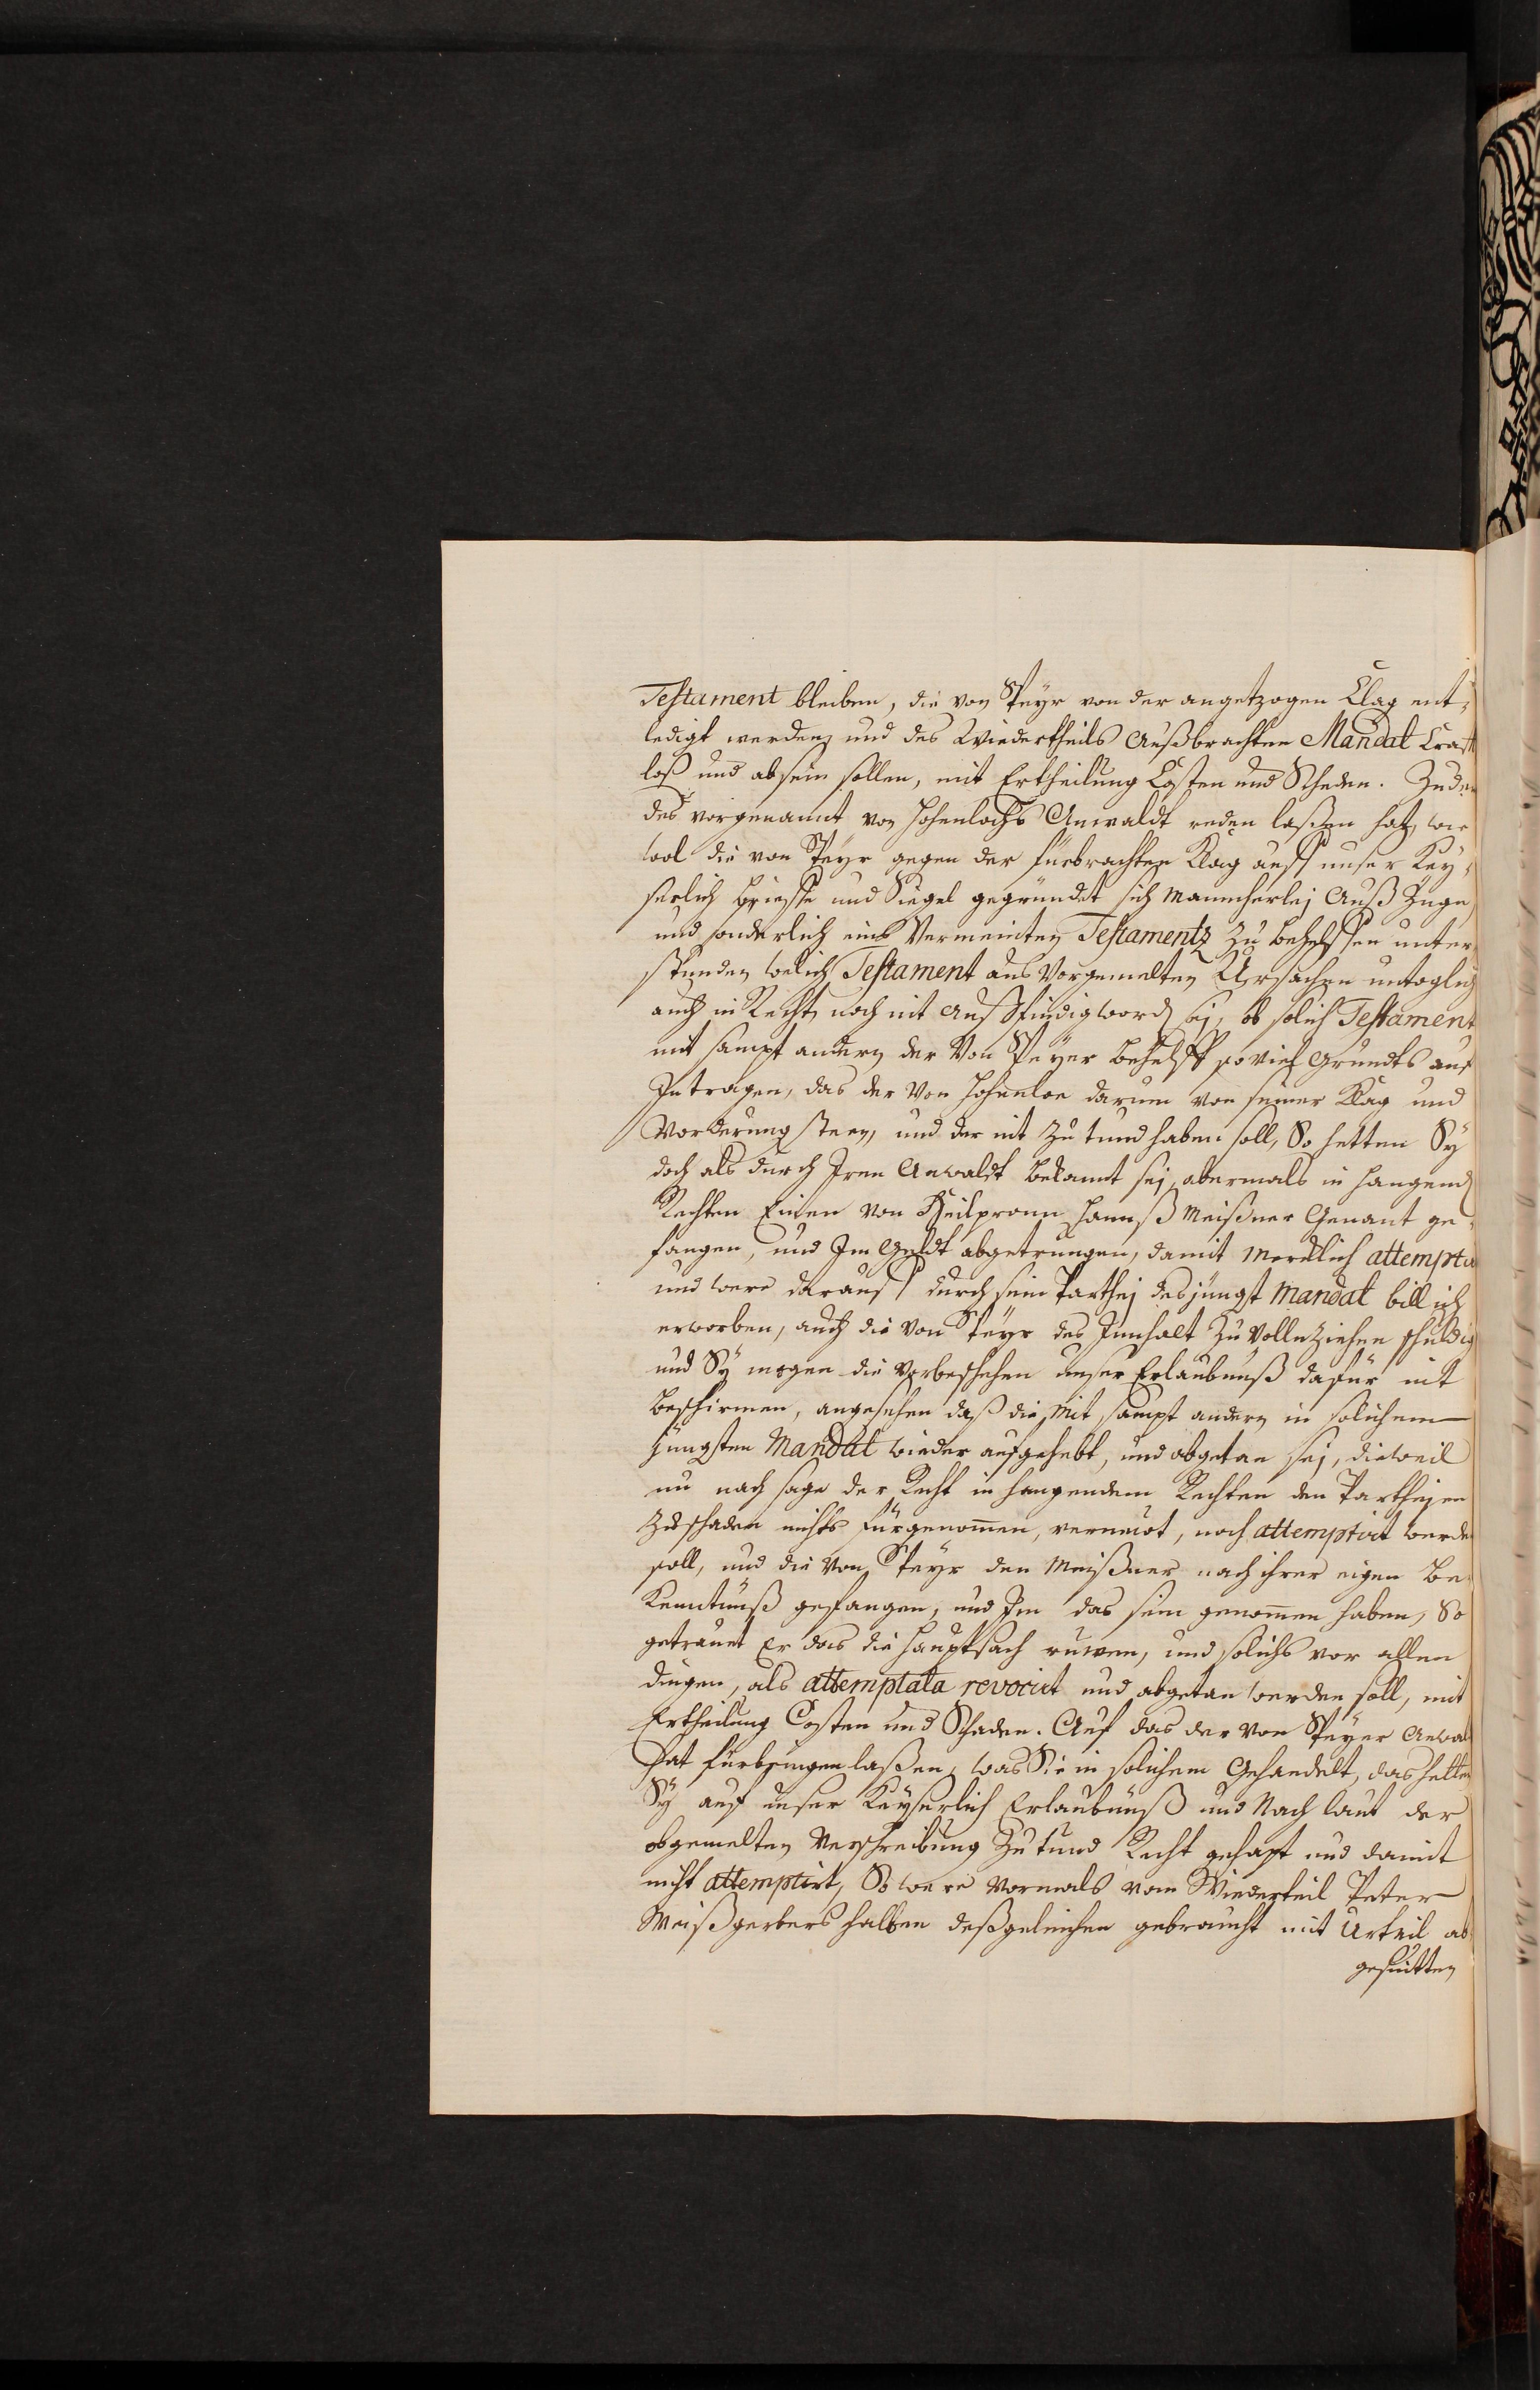 Testament bleiben, die von Speyr von der angetzogen Clag ent¬
ledigt werden und des Wiedertheils außbrachten Mandat Crafft
loß und ab sein sollen, mit Ertheilung Costen und Scheden. Zudem
des vorgenannt von Hohenlochs Anwaldt reden laßen hat, wie
wol die von Speyr gegen der fürbrachten Klag auff unser Key¬
serlich brieffe und Siegel gegründet sich mannicherlej Auß Züge,
und sonderlich eins Vermeinten Testamentz zu behelffen unter
stunden, welich Testament aus vorgemelten Ursachen untoglich
auch in Recht noch nit auß fündig word sej, ob solich Testament
mit sampt andern der von Speyer behelff so viel Grundts auf
Intragen, das der von Hohenloe darum von seiner Klag und
Vorderung steen, und der nit zu tund haben soll, So hetten Sÿ
doch als durch Iren Anwaldt bekannt sej, abermals in hangend
Rechten Einen von Heilpronn Hannß Meißner Genant ge¬
fangen, und Im Geldt abgetrungen, damit mercklich attempta
und were darauff durch sein Parthej des jüngst Mandat billich
erworben, auch die von Speyr des Innhalt zu vollnziehen schuldig
und Sÿ mogen die vorbeschehen unser Erlaubnuß dafür nit
beschirmen, angesehen daß die, mit sampt andern in solichem
jüngsten Mandat wieder aufgehebt, und abgetan sej, dieweil
nu nach sage der Recht in hangendem Rechten den Parthejen
zuschaden nichts fürgenommen, verneuot, noch attemptirt werde
soll, und die von Speyr den Meißner nach ihrer eigen Be¬
kenntnuß gefangen, und Im das sein genommen haben, So
getrauet Er das die Hauptsach ruwen, und solichs vor allen
dingen, als attemptata revocirt und abgetan werden soll, mit
Ertheilung Costen und Schaden. Auf das der von Speyer Anwald
hat fürbringen laßen, was Sie in solichem Gehandelt, das hetten
Sÿ auf unser Keyserlich Erlaubnuß und Nach laut der
obgemelten Verschreibung zu tund Recht gehapt und damit
nicht attemptirt, So were vormals vom Wiederteil Peter
Weißgerbers halben deßgeleichen gebraucht mit Urteil ab¬
geschnitten